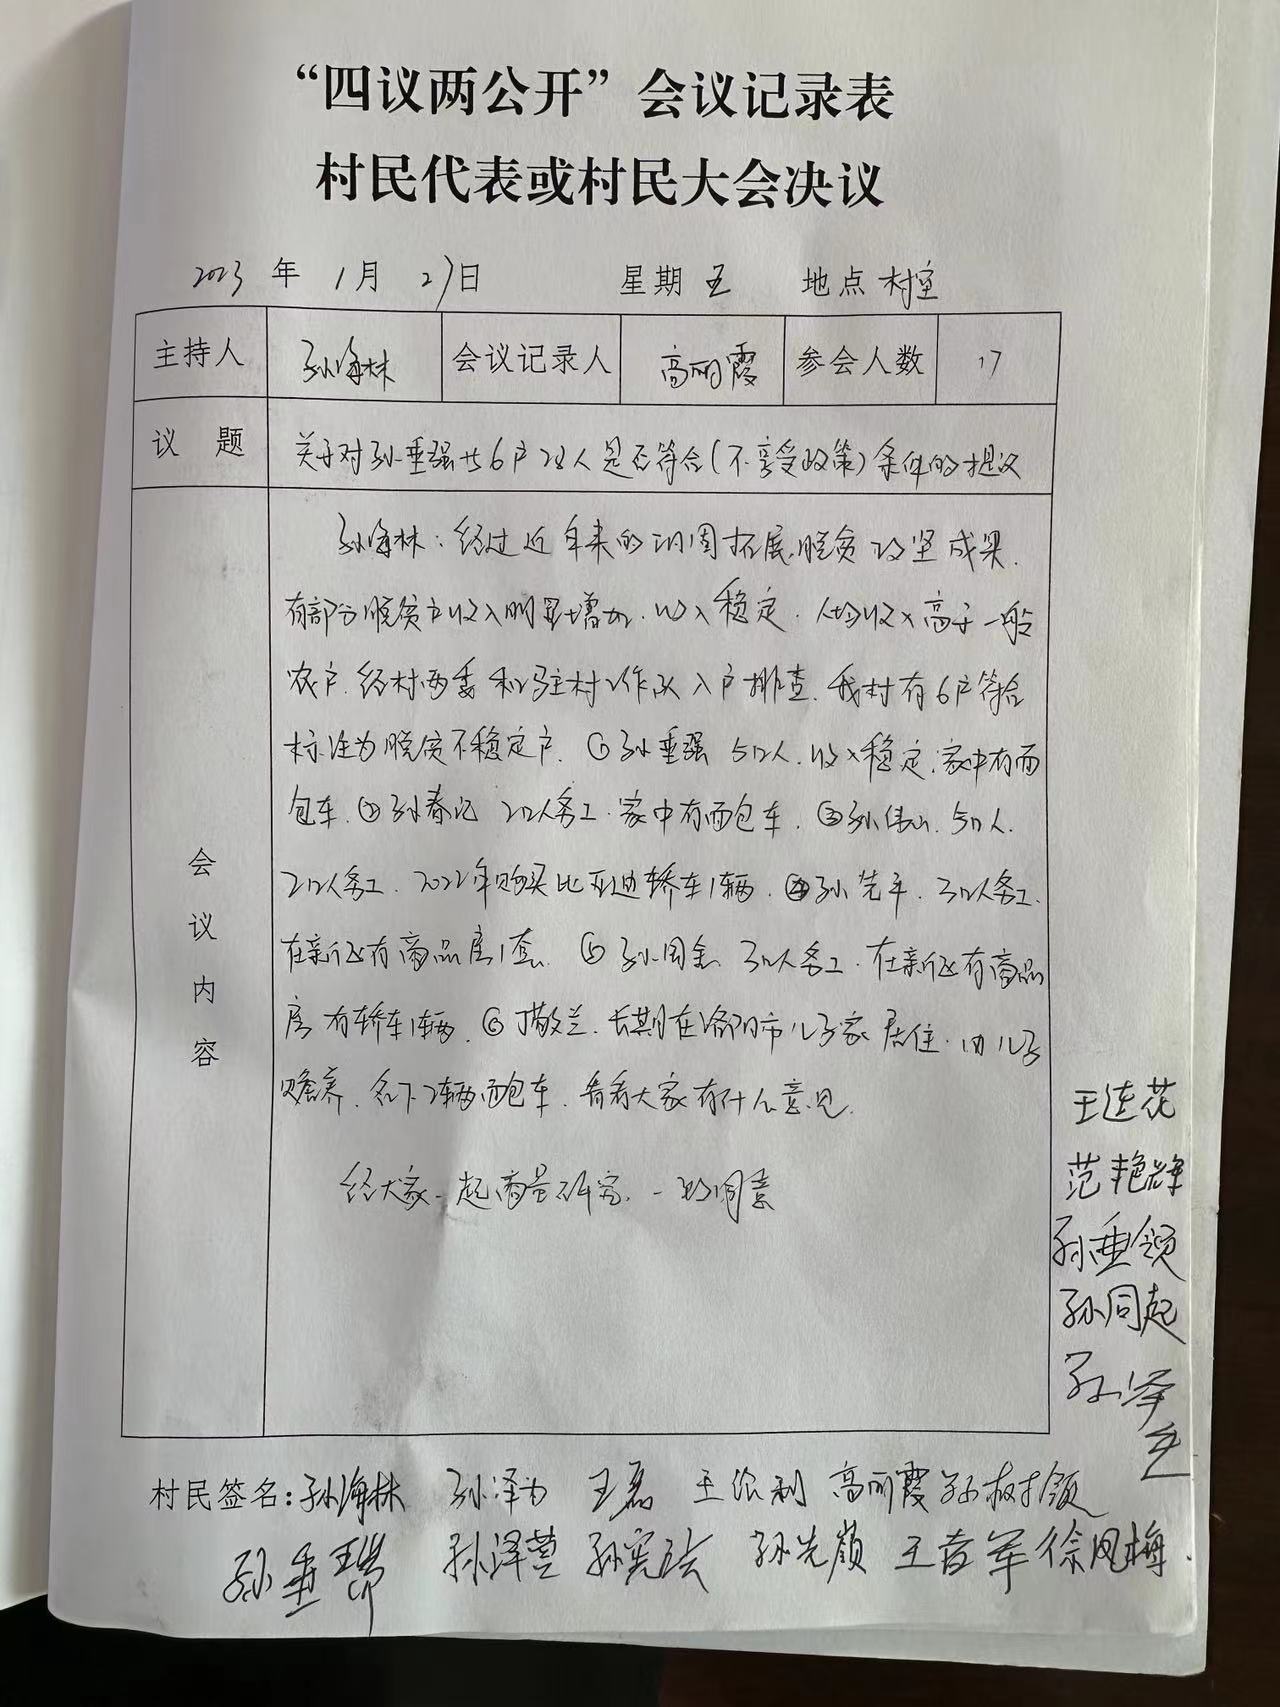 “四议两公开”会议记录表
村民代表或村民大会决议
2023 年 1 月 27日 星期 五 地点 村室
主持人 孙海林 会议记录人 高丽霞 参会人数 17
议 题 关于对孙垂强等6户 人是否符合(不享受政策)条件的提议
会议内容
孙海林:经过近年来的巩固拓展脱贫攻坚成果.
有部分脱贫户收入明显增加.收入稳定.人均收入高于一般
农户.经村两委和驻村工作队入户排查.我村有6户符合
标注为脱贫不稳定户.①孙垂强 5口人.收入稳定.家中有面
包车.②孙春 2口人务工.家中有面包车.③孙 5口人.
2口人务工.2022年购买比亚迪轿车1辆.④孙先平.3口人务工.
在新区有商品房1套.⑤孙周全 3口人务工.在新区有商品
房 有轿车1辆.⑥ 敬兰.长期在洛阳市儿子家居住.由儿子
赡养.名下2辆面包车.看看大家有什么意见.
经大家一起商量研究.一致同意
王连花
范艳辉
孙垂领
孙同起
孙泽
村民签名:孙海林 孙泽为 王磊 王 利 高丽霞 孙树领
孙垂瑞 孙泽营 孙宪法 孙先岭 王春军 徐凤梅